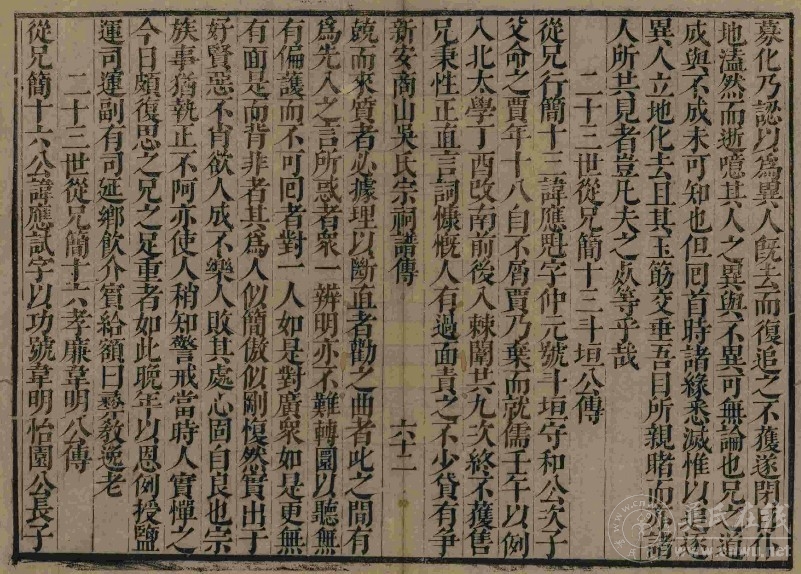 募化乃認以為異人旣去而復追之不獲遂閉戶
地溘然而逝噫其人之異與不異可無論也兄之道
成與不成未可知也但囘首時諸緣悉滅惟以追
異人立地化去且其玉筯交垂吾目所親賭而亦諸
人所共見者豈凡夫之 等乎哉
二十三世從兄簡十三斗垣公傳
從兄行簡十三諱應魁字仲元號斗垣守和公次子
父命之賈年十八自不屑賈乃棄而就儒壬午以例
入北太學丁酉改南前後入棘闈共九次終不獲售
兄秉性正直言詞慷慨人有過面責之不少貸有爭
新安商山吳氏宗祠譜傳
六十二
競而來質者必據理以斷直者勸之曲者此之間有
為先入之言所惑者衆一辨明亦不難轉圜以聽無
有偏護而不可囘者對一人如是對廣衆如是更無
有面是而背非者其為人似簡傲似剛愎然實出于
好賢惡不肖欲人成不樂人敗其處心固自良也宗
族事猶執正不阿亦使人稍知警戒當時人實憚之
今日頗復思之兄之足重者如此晚年以恩例授鹽
運司運副有司延鄉飲介賓給額曰彞教逸老
二十三世從兄簡十六孝廉韋明公傳
從兄簡十六公諱應試字以功號韋明怡園公長子
吳氏在线